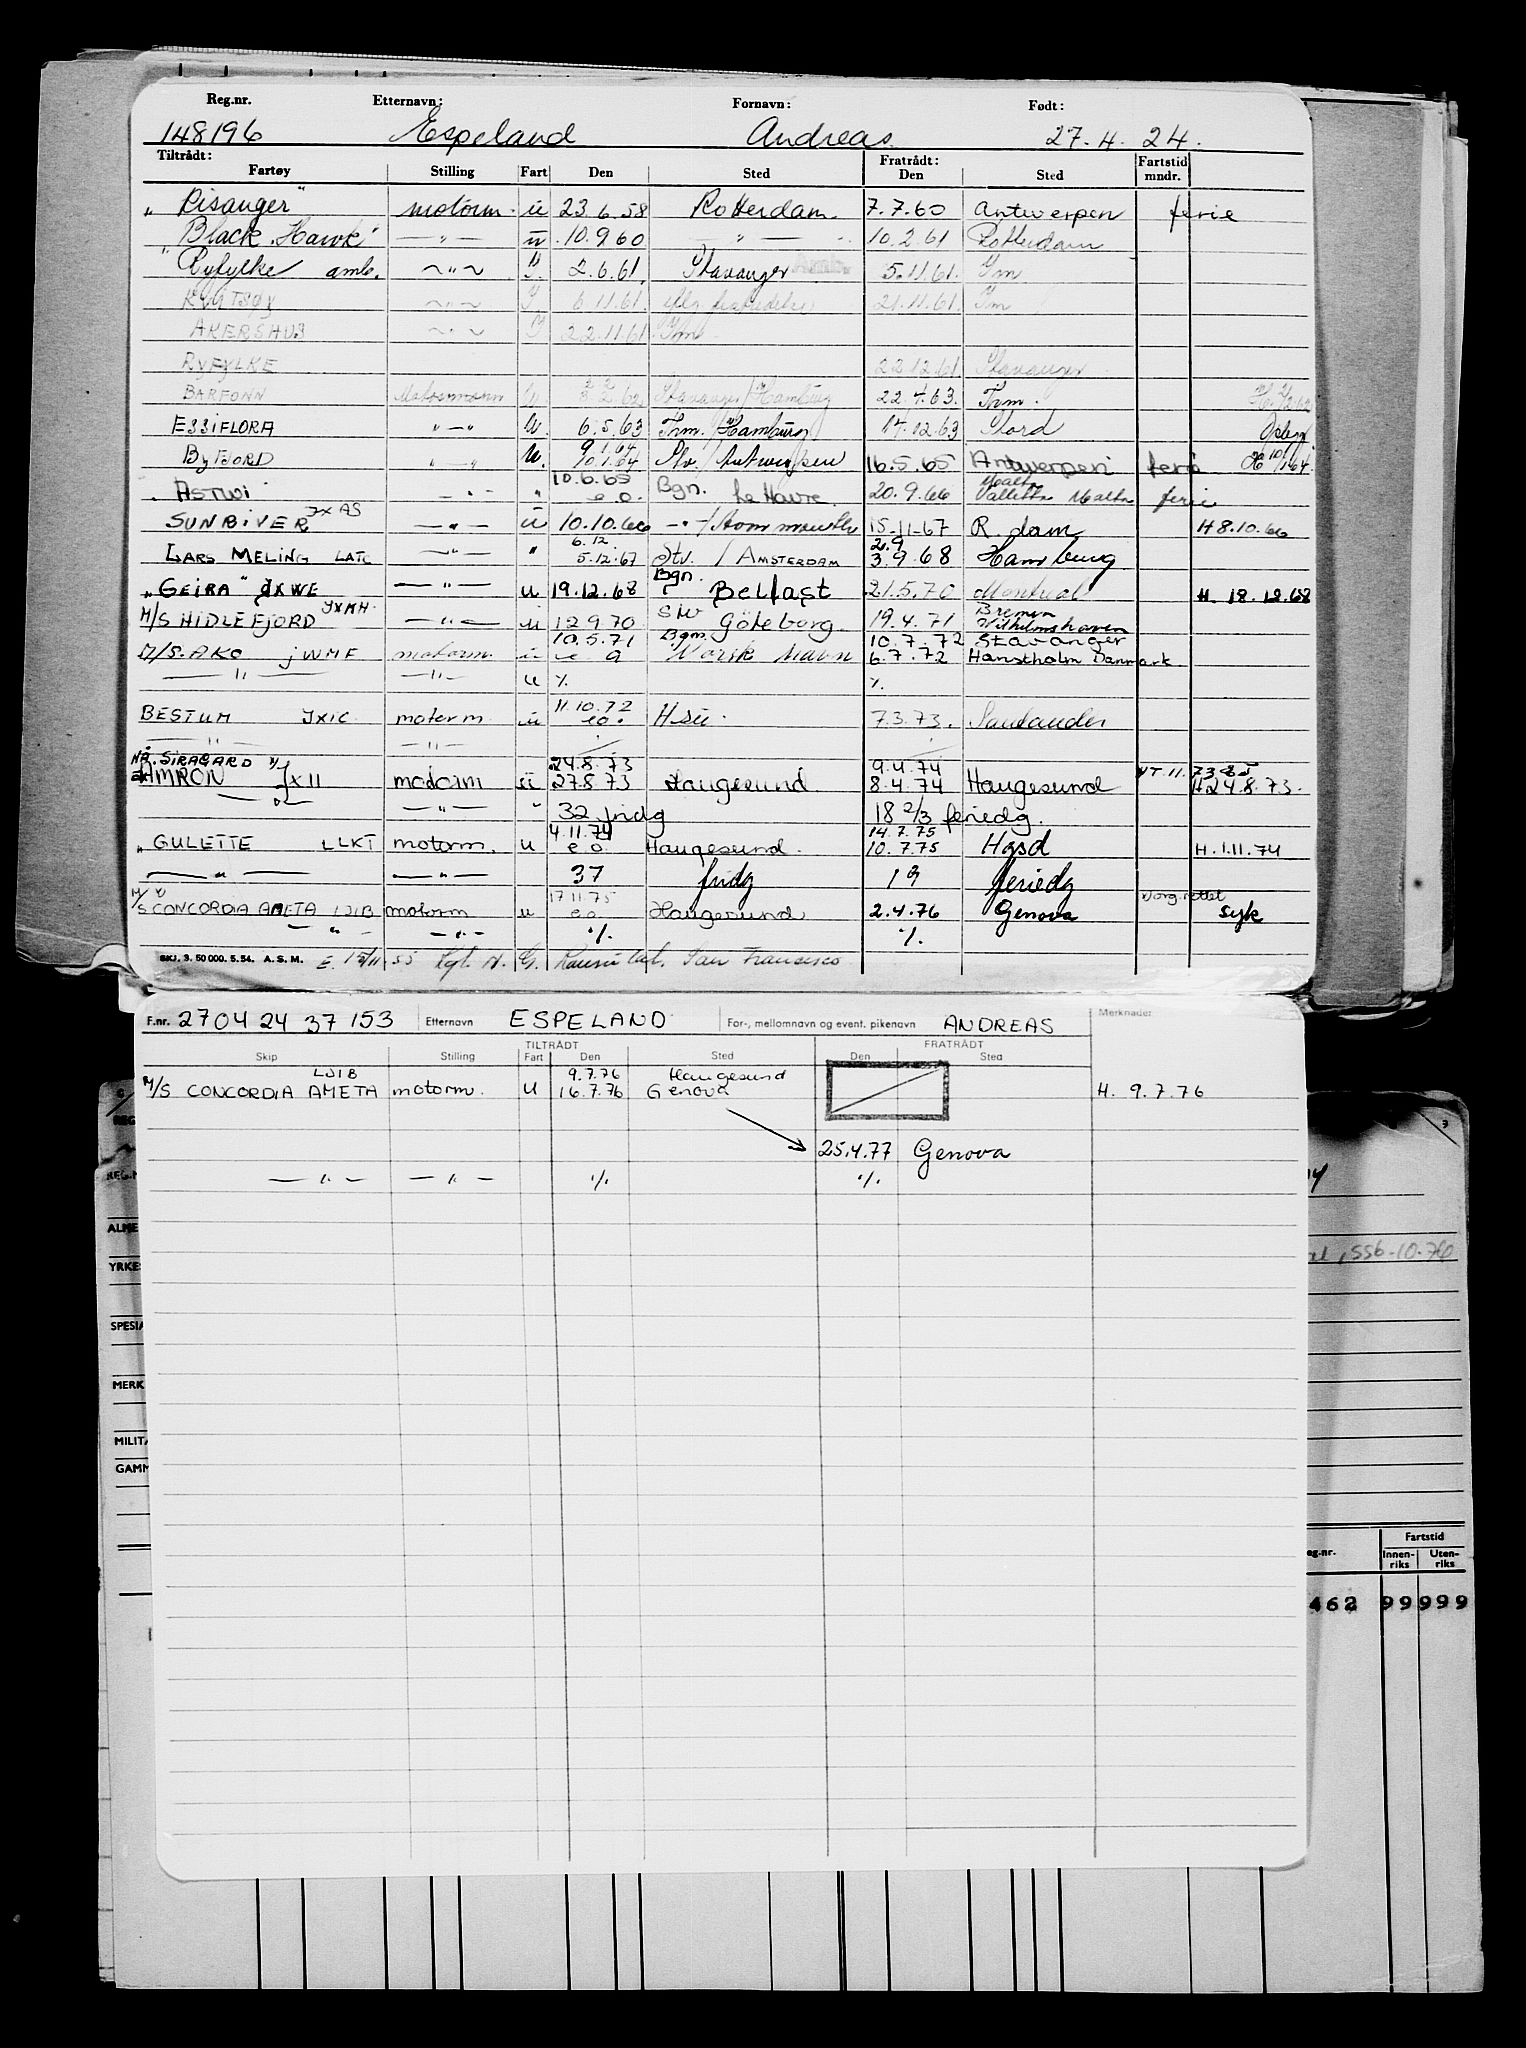 Reg.nr. Etternavn: Fornavn: Født:
148196 Espeland Andreas 27.4.24.
Tiltrådt: Fratrådt: Fartstid
Fartøy Stilling Fart Den Sted Den Sted mndr.
"Risanger" motorm. u 23.6.58 Rotterdam. 7.7.60 Antwerpen ferie
"Black Hawk" — " — u .10.9.60 — " — 10.2.61 Rotterdam
"Ryfylke amb. ~ " ~ 2.6.61 Stavanger 5.11.61.
KVITSØY ~ " ~ 6.11.61. 21.11.61.
AKERSHUS ~ " ~ 22.11.61
RYFYLKE 22.12.61 Stavanger
BARFONN Motormann U. 2.2.62 Stavanger/Hamburg 22.4.63. Thm.
ESSIFLORA " — " U. 6.5.63 Thm./Hamburg 17.12.63 Stord
9.1.64
ByFJORD " — " U. 10.1.64 Slv./Antwerpen 16.5.65 Antwerpen ferie
10.6.65 Malta
ASTWI — " — " e.o. Bgn. Le Havre 20.9.66 Valletta Malta ferie
JXAS
SUNRIVER — " — u 10.10.66 15-11-67 R dam H 8.10.66
6.12 2.9
LARS MELING LATC — " — " 5.12.67 Stv. / AMSTERDAM 3.9.68 Hamburg
"GEIRA" JXWE — " — u 19.12.68 Bgn. Belfast 21.5.70 Montreal H. 18.12.68
JXKH. Bremen
M/S HIDLEFJORD — " — u 12.9.70 Göteborg 19.4.71 Wilhelmshaven
10.5.71 Bgn. 10.7.72 Stavanger
M/S. AKO JWMF motorm. u e o Norsk havn 6.7.72 Hanstholm Danmark.
— " — — " — u ⁒ ⁒
11.10.72
BESTUM JXIC motorm u e.o. Hsu. 7.3.73. Santander
— " — — " —
NÅ. SIRAGARD 24.8.73 9.4.74
AMRON JXII motorm u 27.8.73 Haugesund 8.4.74 Haugesund H 24.8.73.
— " — — " — " 32 fridg 18 2/3 feriedg.
4.11.74 14.7.75
"GULETTE LLKT motorm. u e.o. Haugesund. 10.7.75 Hgsd H. 1.11.74
— " — — " — 37 fridg 19 feriedg
17.11.75
M/S CONCORDIA AMETA LJIB motorm u e.o. Haugesund 2.4.76 Genova syk
— " — — " — ⁒ ⁒
SKJ. 3. 50 000. 5.54. A. S. M. E. 15/11.55 Kgl. N. G. San Francisco
F.nr. 27 04 24 37 153 Etternavn ESPELAND For-, mellomnavn og event. pikenavn ANDREAS Merknader
TILTRÅDT FRATRÅDT
Skip Stilling Fart Den Sted Den Sted
LJIB 9.7.76 Haugesund
M/S CONCORDIA AMETA motorm. u 16.7.76 Genova H. 9.7.76
25.4.77 Genova
— " — — " — ⁒ ⁒
REG.N
ALME
YRKES
SPESIA
MERK
MILITÆ
GAMM
, 556-10.76
Fartstid
eg.nr. Innenriks Utenriks
462 99 999